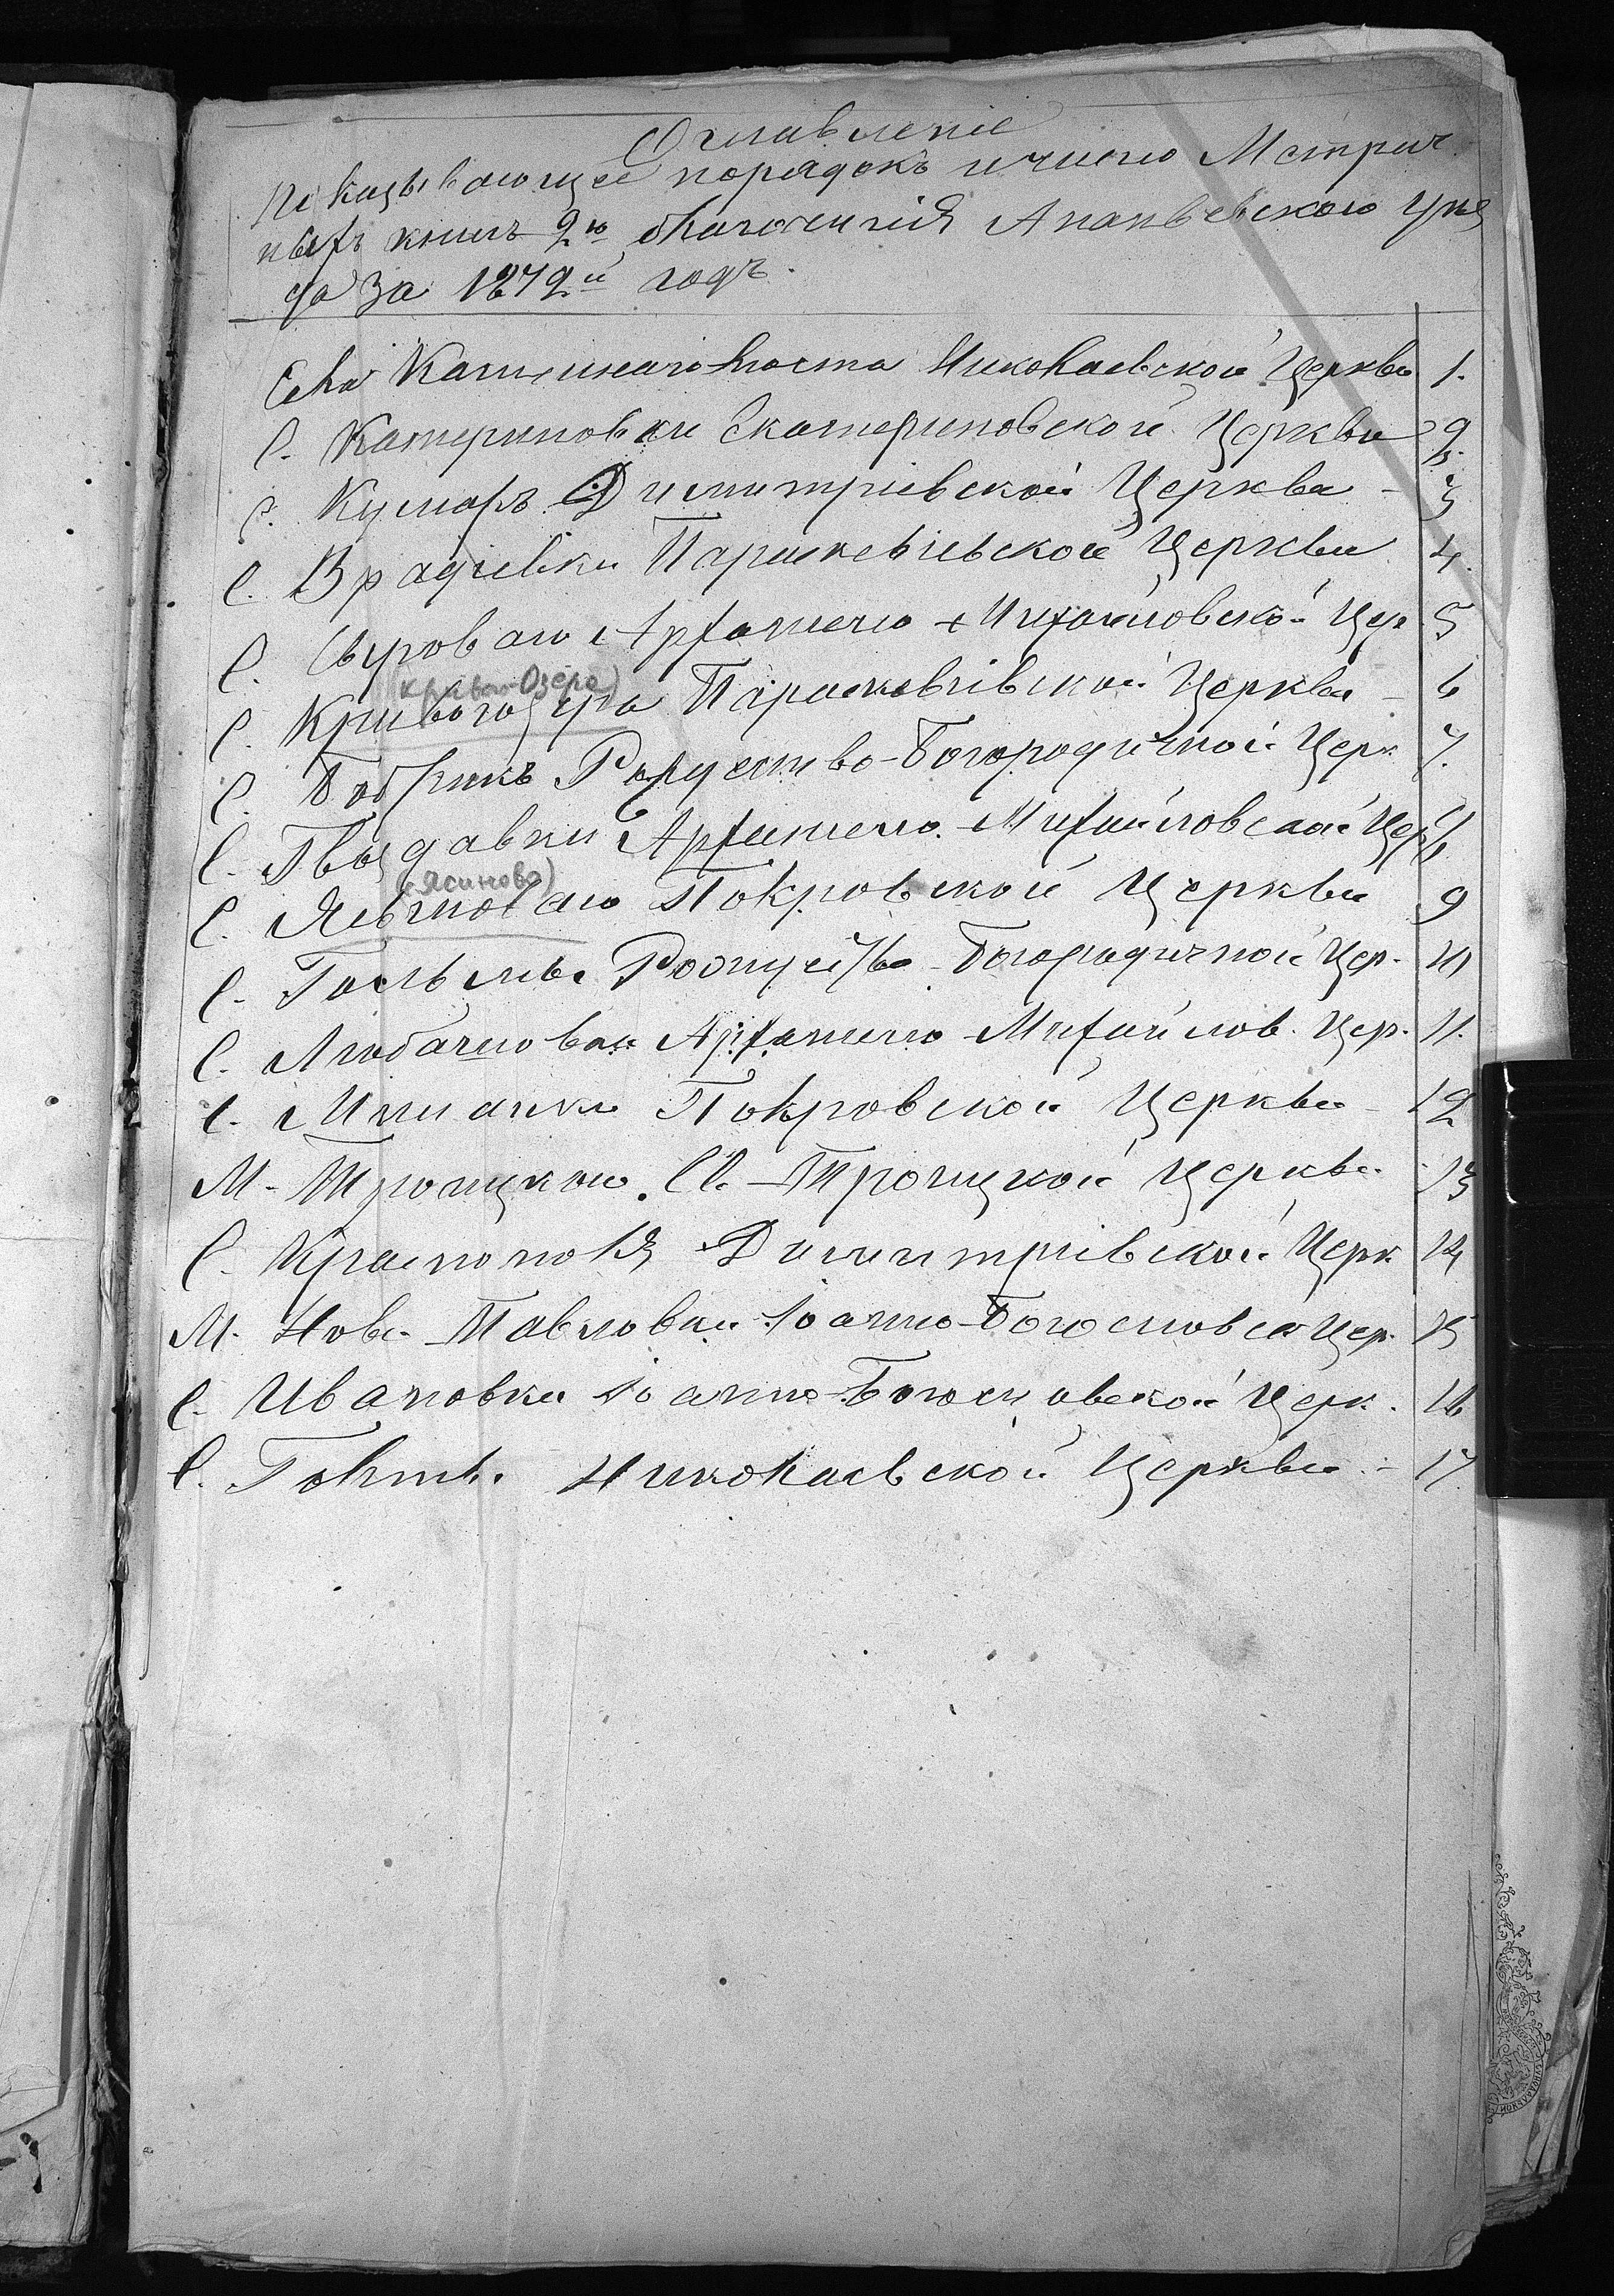 Оглавленіе
показывающее порядокъ и число Метрич
ныхъ книгъ 2го благочинія Ананьевскаго уѣз
да за 1872й годъ.
Села Каменнаго-Моста Николаевской Церкви 1.
С. Катериновки Екатериновской Церкви 2.
С. Кумаръ Димитріевской Церкви - 3
С. Врадіевки Параскевіевской Церкви 4.
С. Сыроваго Архангело-Михайловской Цер 5
(Кривое Озеро)
С. Кривагоозера Параскевіевской Церкви - 6
С. Бобрикъ Рождество-Богородичной Церк 7.
С. Гвоздавки Архангело-Михайловской Цер 8
(Ясиново)
С. Ясиноваго Покровской Церкви 9
С. Гольмы Рождество-Богородичной Цер. 10
С. Любашовки Архангело-Михайлов. Цер. 11.
С. Покровской Церкви - 12
М. Троицкаго Св.-Троицкой Церкви 13
С. Краснополя Димитріевской Церк 14
М. Ново-Павловки Іоанно-Богословск Цер. 15
С. Ивановки Іоанно-Богословской Церк. 16
С. Голты Николаевской Церкви - 17